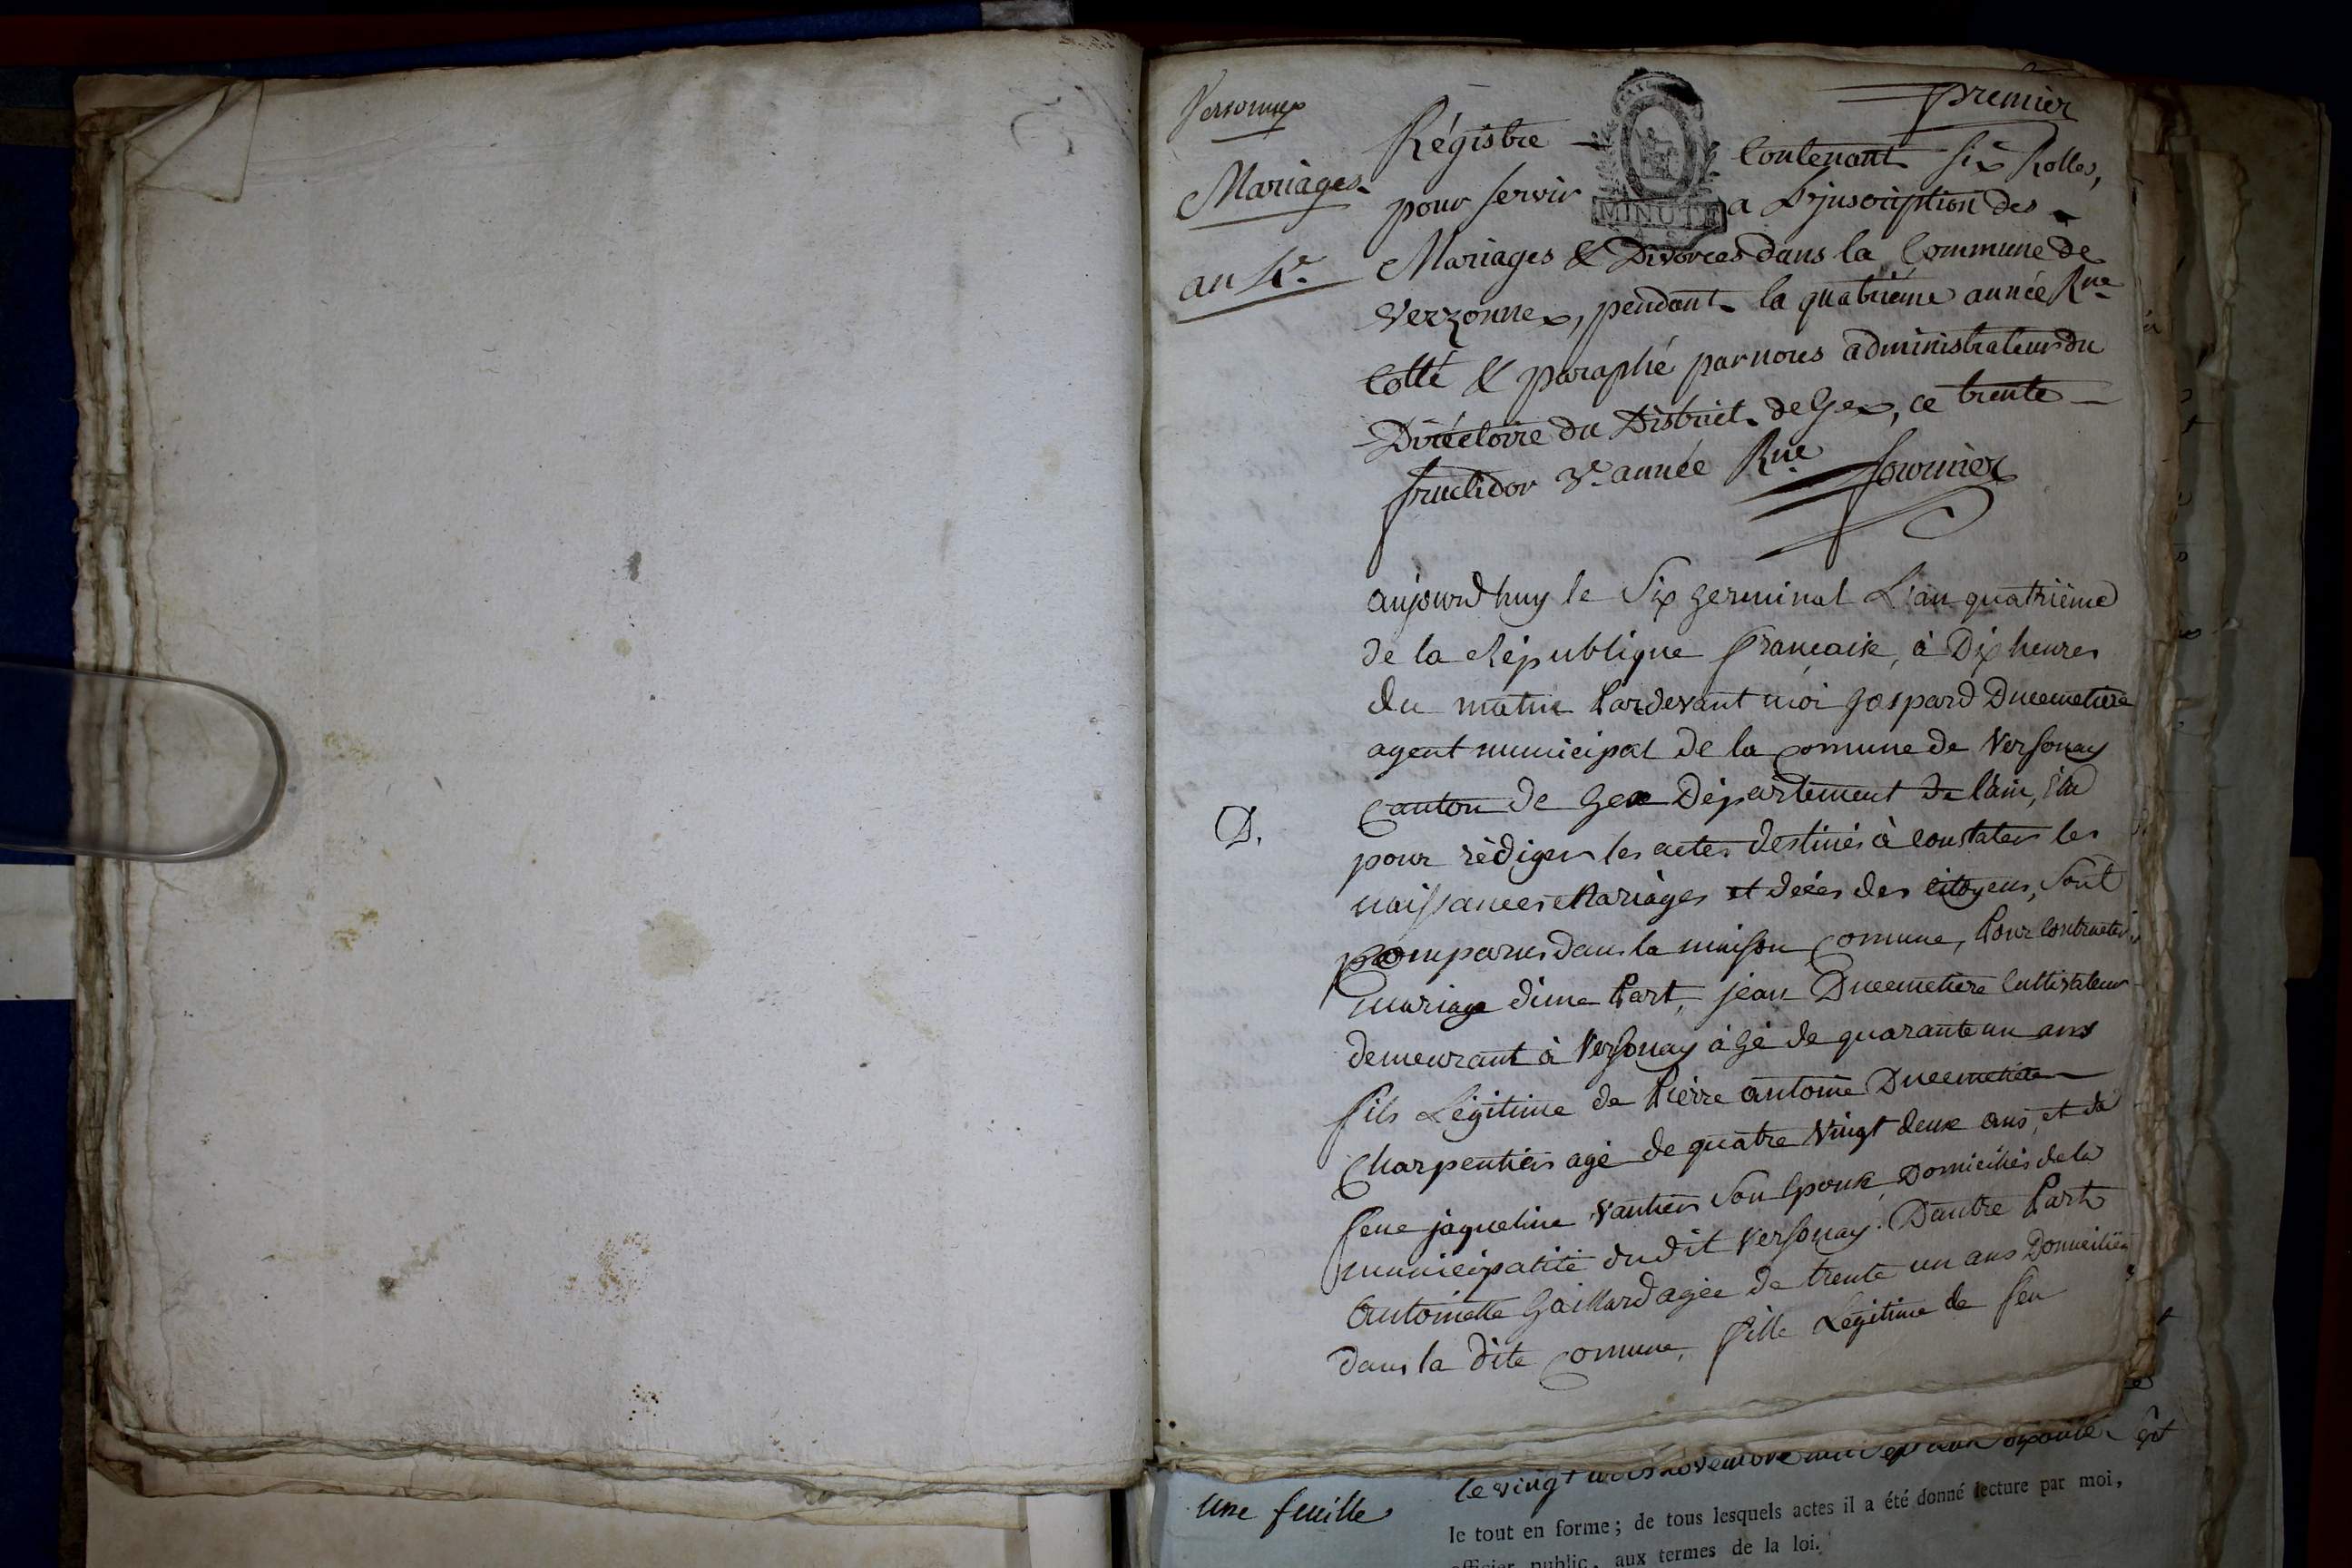 Versonnex
Mariages
an 4e
premier
Régistre Contenant six Rolles,
pour servir a L'jnscription des
MINUTE
Mariages & Divorces dans la Commune de
Verzonnex, pendant la quatriême année Rne
Cotté & paraphé par nous administrateur du
Diréctoire du District de Gex, ce trente
fructidor 3e année Rne fournier
aujourdhuy le Six germinal L'an quatriême
de la République française, à Dix heures
du matin Pardevant moi gaspard Ducemetiere
agent municipal de la comune de Versonay
Canton de Gex Département de l'ain, élu
D.
pour rédiger les actes destinés à constater les
naissances Mariages et décés des citoyens, Sont
comparus dans la maison comune, Pour Contracter
mariage d'une Part, jean Ducemetiere Cultivateur
demeurant à Versonay âgé de quarante un ans
fils Légitime de Pierre antoine Ducemetiere
Charpentier agé de quatre vingt deux ans, et de
feue jaqueline vautier Son Epouse, Domiciliés de la
municipalité dudit Versonay. D'autre Part
Antoinette Gaillard agée de trente un ans Domiciliée
dans la dite comune, fille Légitime de feu
le vingt
une feuille
le tout en forme; de tous lesquels actes il a été donné lecture par moi,
officier public, aux termes de la loi.